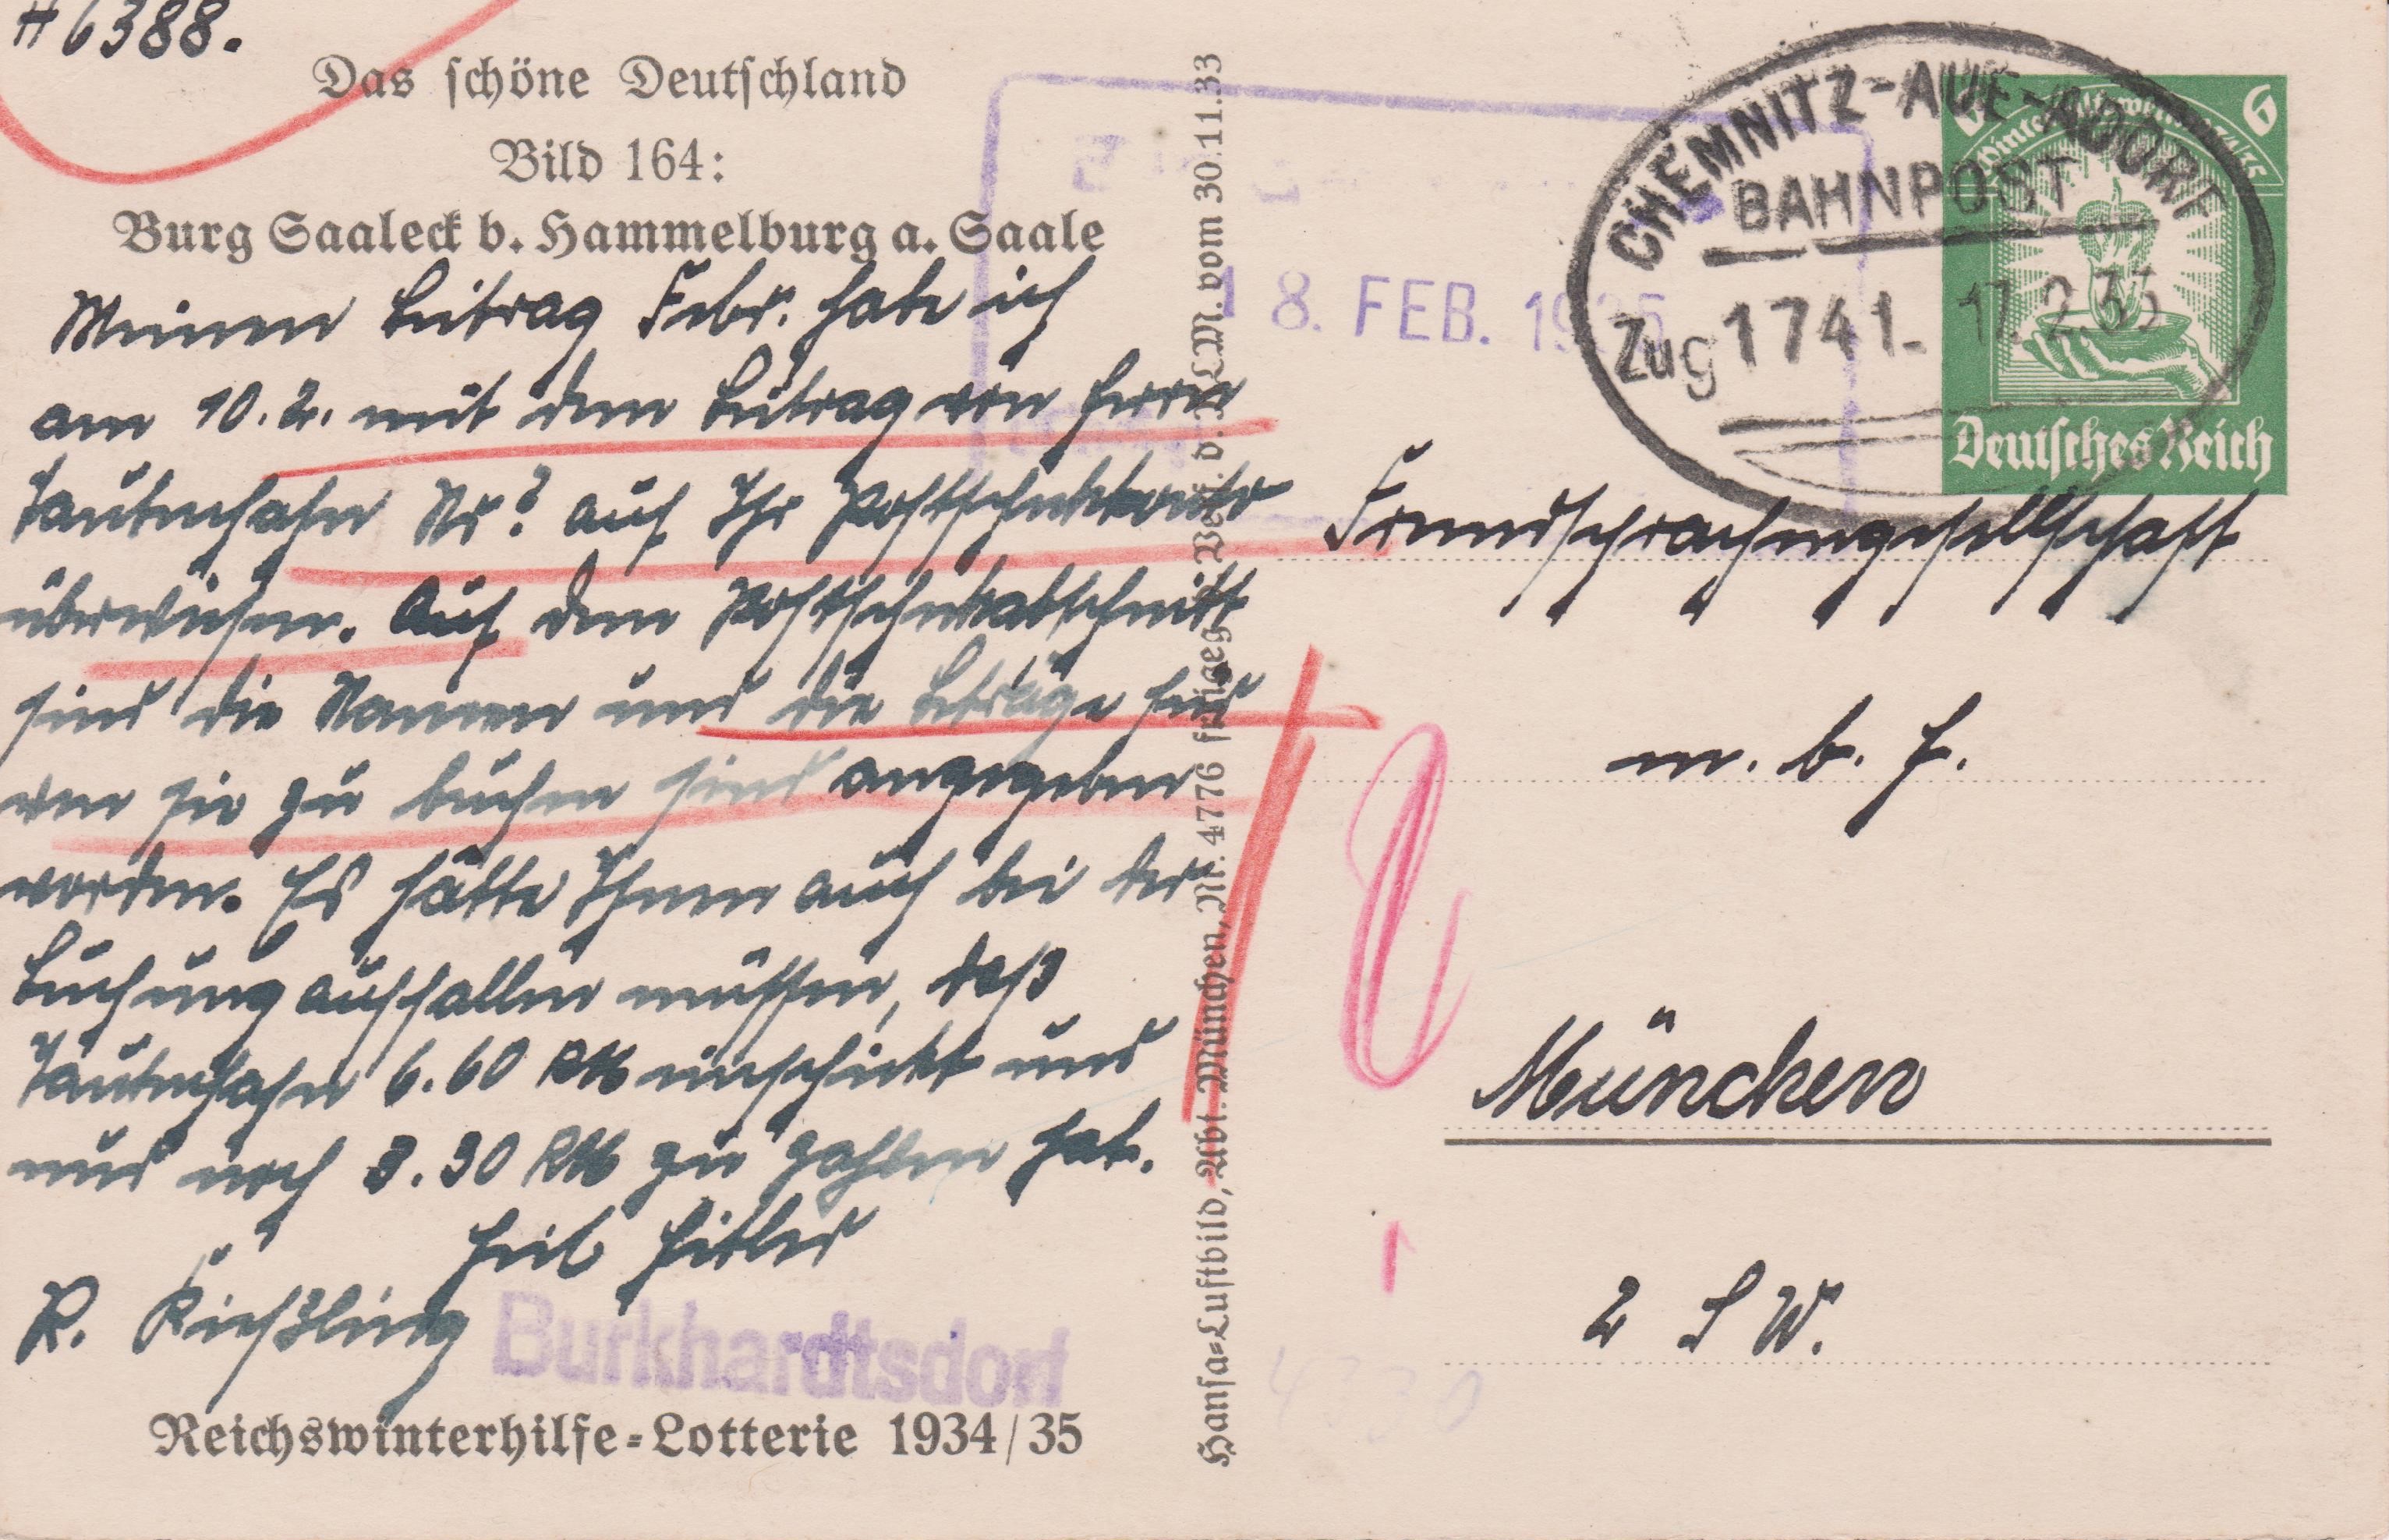 # 6388.
Das schöne Deutschland
Bild 164:
Burg Saaleck b. Hammelburg a. Saale
Meinen Beitrag Febr. habe ich
am 10.2. mit dem Beitrag von Herrn
Tautenhahn Nr? auf Ihr Postscheckkonto
überwiesen. Auf dem Postscheckabschnitt
sind die Namen und die Beträge für
wen sie zu buchen sind angegeben
worden. Es hätte Ihnen auch bei der
Buchung auffallen müssen, daß
Tautenhahn 6.60 RM einschickt und
nur noch 3.30 RM zu zahlen hat.
Heil Hitler
R. Kießling
Burkhardtsdorf
Reichswinterhilfe-Lotterie 1934/35
Hansa-Luftbild, Abt. München, Nr. 4776 d. vom 30.11.33
18. FEB. 1935
CHEMNITZ-AUE-ADORF
BAHNPOST
Zug 1741 17.2.35
6
34/35
Deutsches Reich
Fremdsprachengesellschaft
m. b. H.
München
2 S W.